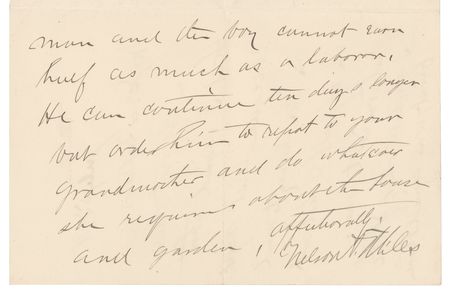 man and the boy cannot earn
half as much as a laborer.
He can continue ten days longer
but order him to report to your
grandmother and do whatever
she requires about the house
and garden, affectionately,
Nelson A. Miles